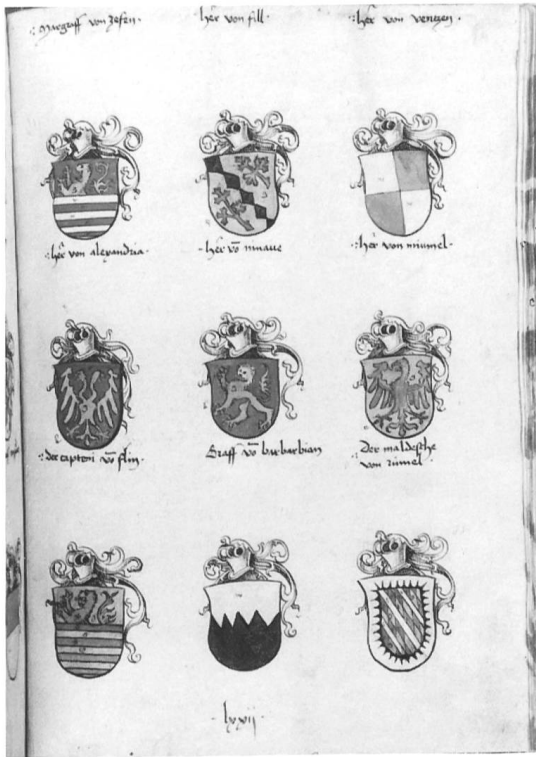 Margraff von zesen
her von fill
her von ventzen
her von alexandria
her vo minaue
her von mimmel
der capteni vo flin
Graff vo barbarbian
Der maldesche
von rimel
lxxij